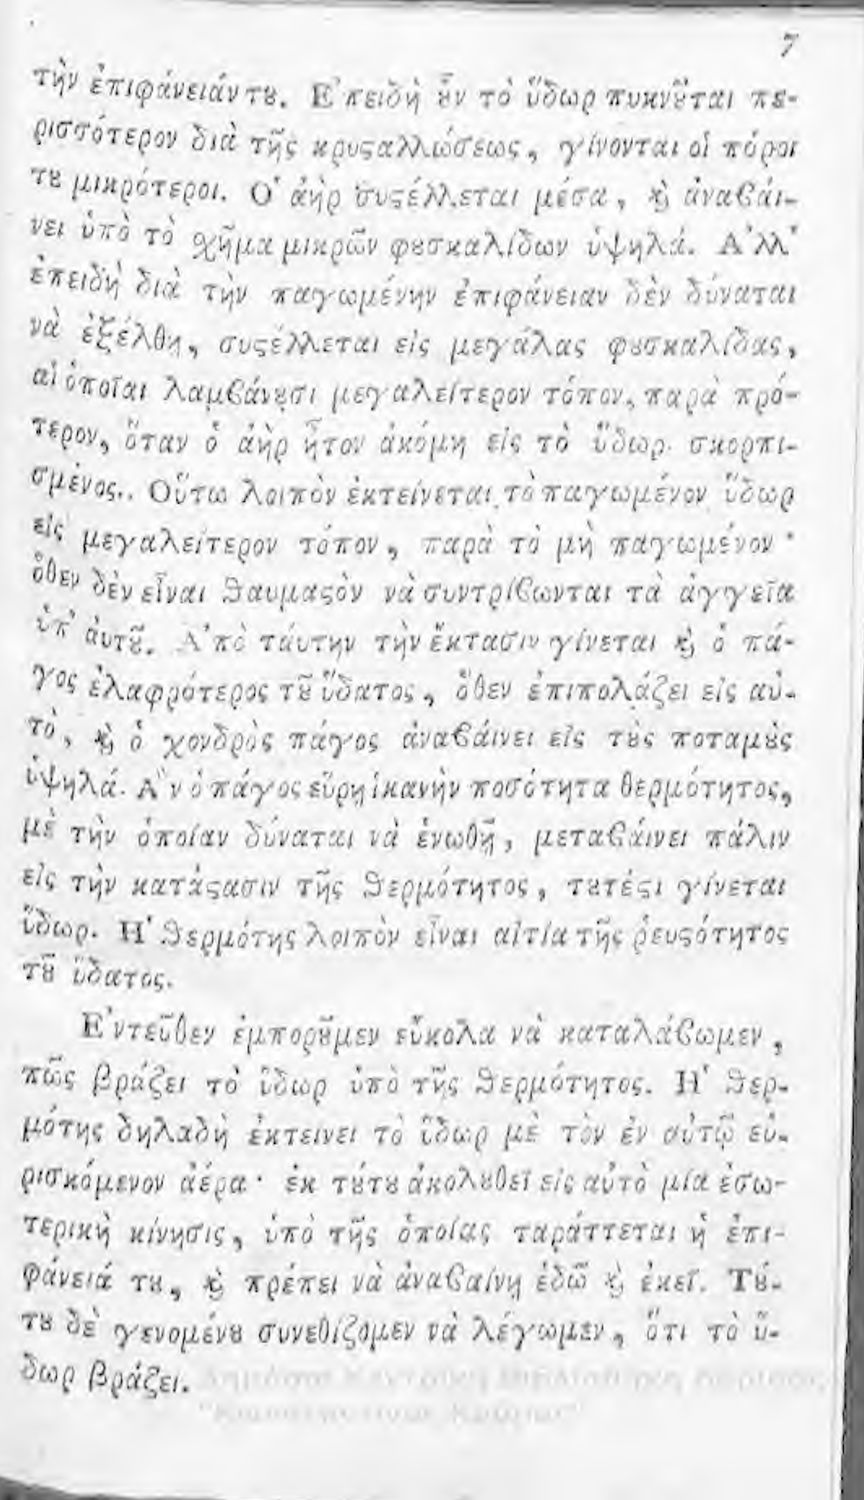 7
τὴν ἐπιφάνειάν τȣ. Ἐπειδὴ ȣ̓ν τὸ ὕδωρ πυκνȣ͂ται πε-
ρισσότερον διὰ τῆς κρυϛαλλιώσεως, γίνονται οἱ πόροι
τȣ μικρότεροι. Ὁ ἀὴρ συϛέλλεται μέσα, ϗ ἀναβάι-
νει ὑπὸ τὸ χῆμα μικρῶν φȣσκαλίδων ὑψηλά. Ἀλλ'
ἐπειδὴ διὰ τὴν παγωμένην ἐπιφάνειαν δὲν δύναται
νὰ ἐξέλθῃ, συϛέλλεται εἰς μεγάλας φȣσκαλίδας,
αἱ ὁποῖαι λαμβάνȣσι μεγαλείτερον τόπον, παρὰ πρό-
τερον, ὅταν ὁ ἀὴρ ἦτον ἀκόμη εἰς τὸ ὕδωρ σκορπι-
σμένος. Οὕτω λοιπὸν ἐκτείνεται τὸ παγωμένον ὕδωρ
εἰς μεγαλείτερον τόπον, παρὰ τὸ μὴ παγωμένον·
ὅθεν δὲν εἶναι ϑαυμαϛὸν νὰ συντρίβωνται τὰ ἀγγεῖα
ὑπ' ἀυτȣ͂. Ἀπὸ ταύτην τὴν ἔκτασιν γίνεται ϗ ὁ πά-
γος ἐλαφρότερος τȣ͂ ὕδατος, ὅθεν ἐπιπολάζει εἰς αὐ-
τὸ, ϗ ὁ χονδρὸς πάγος ἀναβάινει εἰς τȣ̀ς ποταμȣ̀ς
ὑψηλά. Ἂν ὁ πάγος εὕρῃ ἱκανὴν ποσότητα θερμότητος,
μὲ τὴν ὁποίαν δύναται νὰ ἑνωθῇ, μεταβάινει πάλιν
εἰς τὴν κατάϛασιν τῆς ϑερμότητος, τȣτέϛι γίνεται
ὕδωρ. Ἡ ϑερμότης λοιπὸν εἶναι αἰτία τῆς ῥευϛότητος
τȣ͂ ὕδατος.
Ἐντεῦθεν ἐμπορȣ͂μεν εὔκολα νὰ καταλάβωμεν,
πῶς βράζει τὸ ὕδωρ ὑπὸ τῆς ϑερμότητος. Ἡ ϑερ-
μότης δηλαδὴ ἐκτεινει τὸ ὕδωρ μὲ τὸν ἐν αὐτῷ εὑ-
ρισκόμενον ἀέρα· ἐκ τȣ́τȣ ἀκολȣθεῖ εἰς αὐτὸ μία ἐσω-
τερικὴ κίνησις, ὑπὸ τῆς ὁποίας ταράττεται ἡ ἐπι-
φάνειά τȣ, ϗ πρέπει νὰ ἀναβαίνῃ ἐδῶ ϗ ἐκεῖ. Τȣ́-
τȣ δὲ γενομένȣ συνεθίζομεν νὰ λέγωμεν, ὅτι τὸ ὕ-
δωρ βράζει.